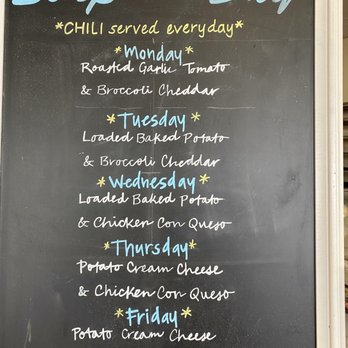 *CHILI served everyday*
*Monday*
Roasted Garlic Tomato
& Broccoli Cheddar
*Tuesday*
Loaded Baked Potato
& Broccoli Cheddar
*Wednesday*
Loaded Baked Potato
& Chicken Con Queso
*Thursday*
Potato Cream Cheese
& Chicken Con Queso
*Friday*
Potato Cream Cheese